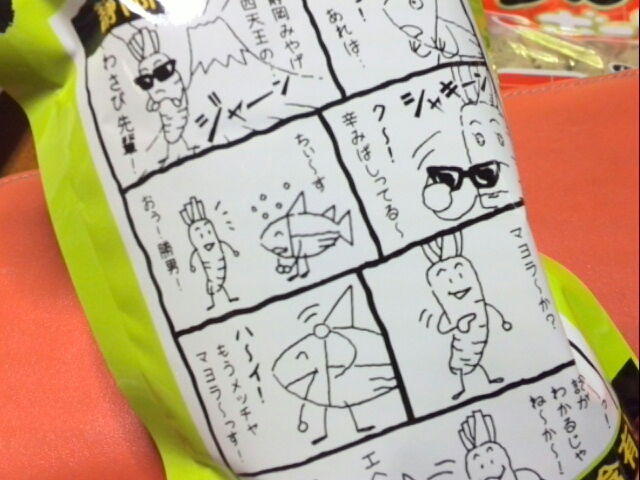 ！
あれは…
静岡みやげ
四天王の…
ジャーン
わさび先輩！
シャキーン
ク〜！
辛みばしってる〜
ちぃ〜す
おぅ！勝男！
マヨラ〜か？
ハ〜イ！
もうメッチャ
マヨラ〜っす！
話が
わかるじゃ
ね〜か〜！